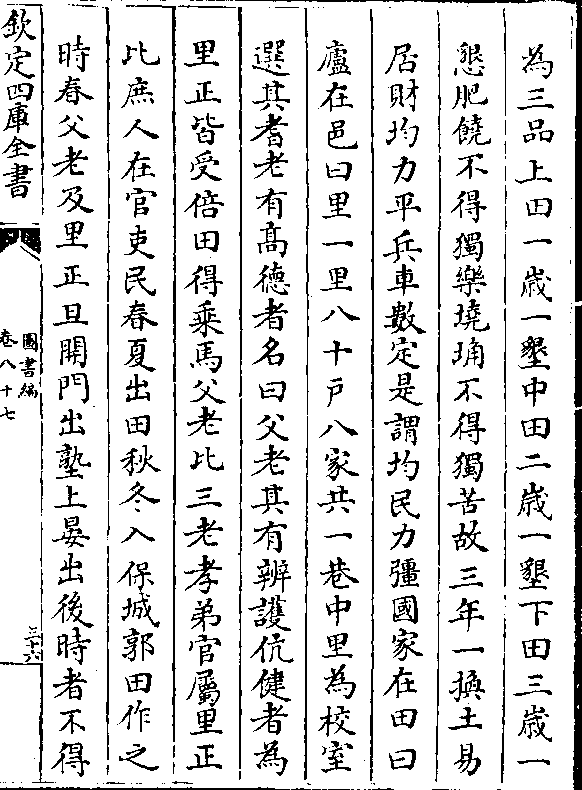 為三品上田一歲一墾中田二歲一墾下田三歲一
懇肥饒不得獨樂墝埆不得獨苦故三年一換土易
居財均力平兵車數定是謂均民力彊國家在田曰
廬在邑曰里一里八十戸八家共一巷中里為校室
選其耆老有髙德者名曰父老其有辨護伉健者為
里正皆受倍田得乗馬父老比三老孝弟官屬里正
比庶人在官吏民春夏出田秋冬入保城郭田作之
時春父老及里正旦開門出塾上晏出後時者不得
欽定四庫全書
圖書編
卷八十七
三十六